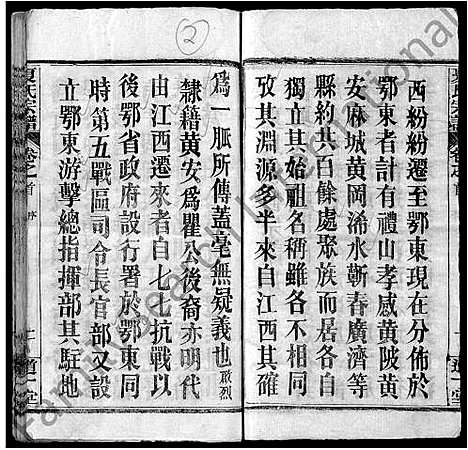 西紛紛遷至鄂東現在分佈於
鄂東者計有禮山孝感黃陂黃
安麻城黃岡浠水蘄春廣濟等
縣約共百餘處聚族而居各自
獨立其始祖名稱雖各不同而
攷其淵源多半來自江西其確
為一脈所傳蓋毫無疑義也 敢烈
隸籍黃安為瞿公後裔亦明代
由江西遷來者自七七抗戰以
後鄂省府設行署於鄂東同
時第五戰區司令長官部又設
立鄂東游擊總指揮部其駐地
夏氏宗譜
卷之首
序
道一堂
2